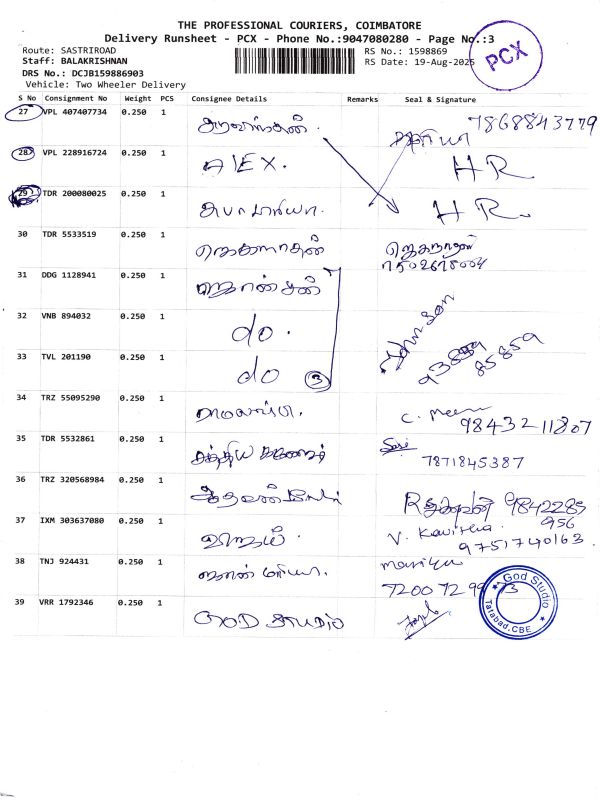 THE PROFESSIONAL COURIERS, COIMBATORE
Delivery Runsheet - PCX - Phone No.:9047080280 - Page No.:3
Route: SASTRIROAD
RS No.: 1598869
Staff: BALAKRISHNAN
RS Date: 19-Aug-2025
PCX
DRS No.: DCJB159886903
Vehicle: Two Wheeler Delivery
S No Consignment No Weight PCS Consignee Details Remarks Seal & Signature
27 VPL 407407734 0.250 1 7868843779
28 VPL 228916724 0.250 1 ALEX. HR
29 TDR 200080025 0.250 1 HR.
30 TDR 5533519 0.250 1 ஜெகநாதன் ஜெகநாதன்
31 DDG 1128941 0.250 1 ஜொன்சன்
32 VNB 894032 0.250 1 do.
Johnson
33 TVL 201190 0.250 1 do 3
93899 85859
34 TRZ 55095290 0.250 1 C. Meena
9843211807
35 TDR 5532861 0.250 1 Sasi
7871845387
36 TRZ 320568984 0.250 1 9842285
956
37 IXM 303637080 0.250 1 V. Kavitha
9751740163.
38 TNJ 924431 0.250 1 ஜான் மரியா. mariya
7200 72 99 73
39 VRR 1792346 0.250 1 GOD STUDIO
God Studio
Tatabad, CBE